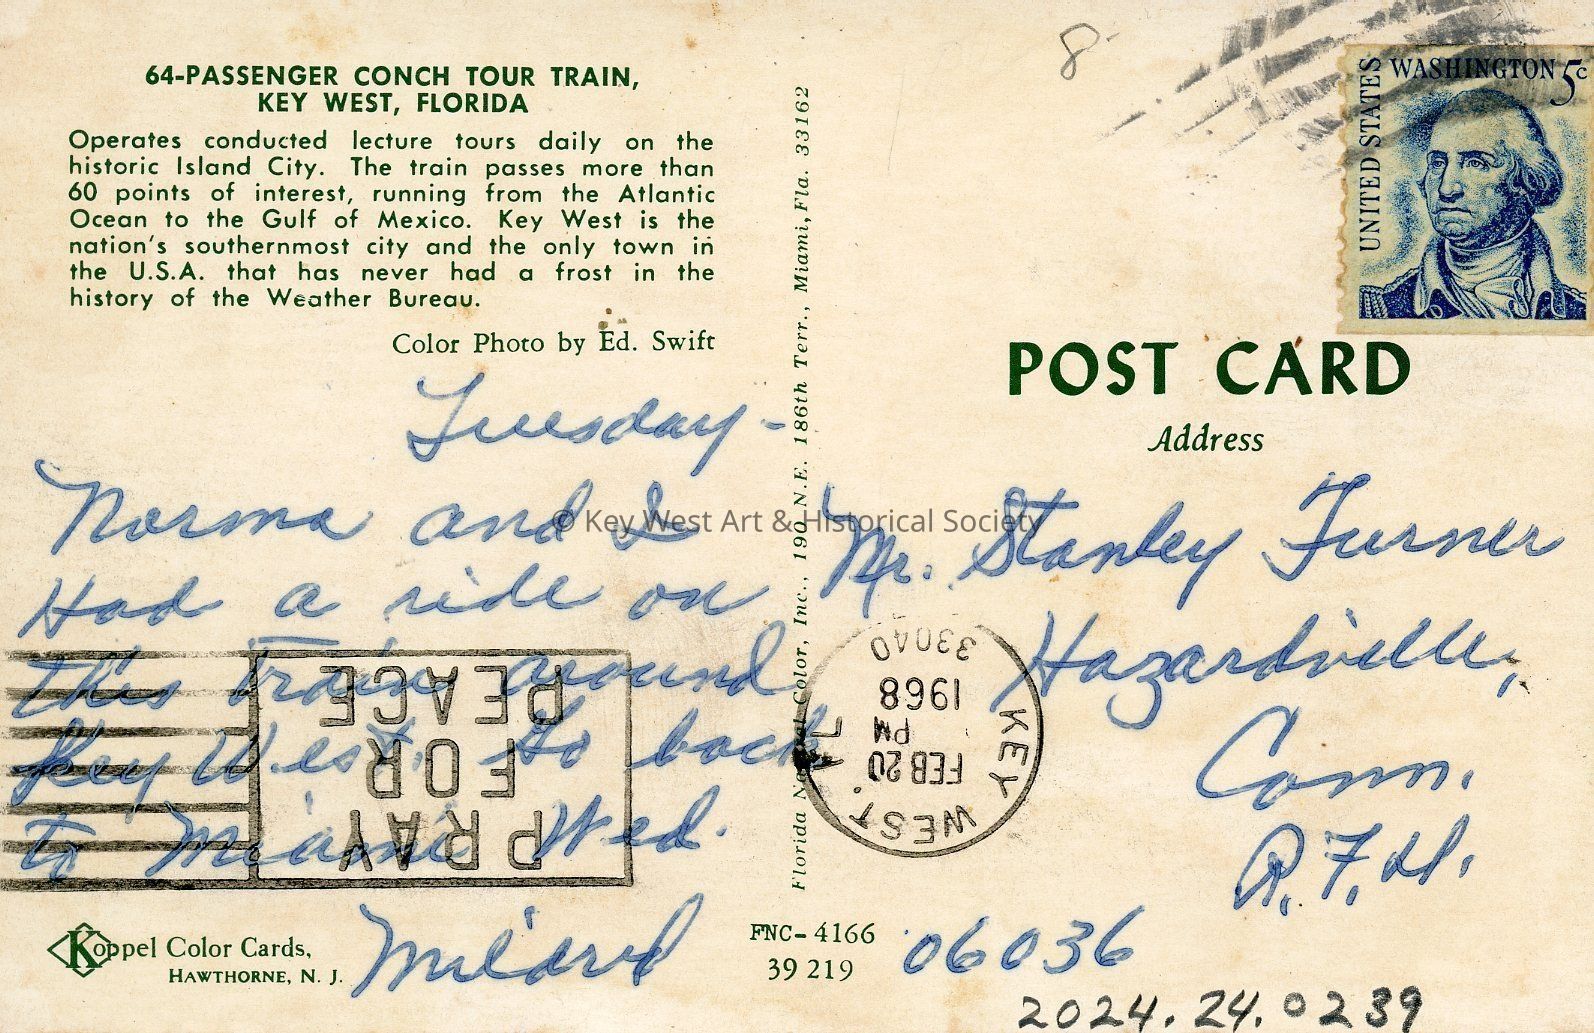 64-PASSENGER CONCH TOUR TRAIN,
KEY WEST, FLORIDA
Operates conducted lecture tours daily on the
historic Island City. The train passes more than
60 points of interest, running from the Atlantic
Ocean to the Gulf of Mexico. Key West is the
nation's southernmost city and the only town in
the U.S.A. that has never had a frost in the
history of the Weather Bureau.
Color Photo by Ed. Swift
Tuesday -
Norma and I
Had a ride on
this Train around
Key West. Go back
to Miami Wed.
Mildred
Koppel Color Cards,
HAWTHORNE, N. J.
PRAY
FOR
PEACE
Florida Natural Color, Inc., 190 N.E. 186th Terr., Miami, Fla. 33162
FNC-4166
39 219
8
UNITED STATES
WASHINGTON 5c
POST CARD
Address
Mr. Stanley Turner
Hazardville,
Conn.
R.F.D.
06036
KEY WEST.
FEB 20
PM
1968
33040
2024.24.0239
© Key West Art & Historical Society